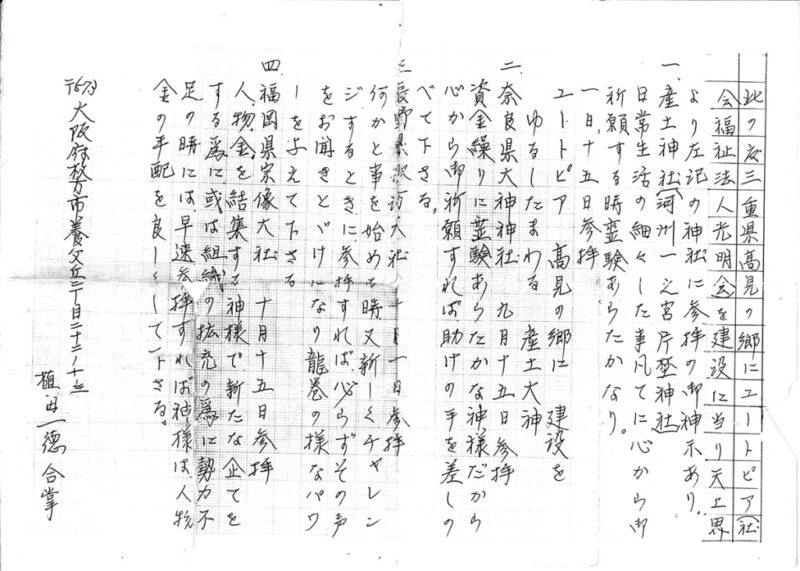 此の度三重県高見の郷にユートピア(社
会福祉法人光明会)を建設に当り天上界
より左記の神社に参拝の御神示あり。
一、産土神社(河州一之宮片埜神社)
日常生活の細々した事凡てに心から御
祈願する時霊験あらたかなり。
一日、十五日参拝
ユートピア 高見の郷に 建設を
ゆるしたまわる 産土大神
二、奈良県大神神社 九月十五日参拝
資金繰りに霊験あらたかな神様だから
心から御祈願すれば助けの手を差しの
べて下さる。
三、長野県諏訪大社 十月一日参拝
何かと事を始める時又新しくチャレン
ジするときに参拝すれば必らずその声
をお聞きとどけになり龍巻の様なパワ
ーを与えて下さる
四、福岡県宗像大社 十月十五日参拝
人、物、金を結集する神様で新たな企てを
する為に或は組織の拡充の為に勢力不
足の時には早速参拝すれば神様は人物
金の手配を良くして下さる。
〒573 大阪府枚方市養父丘二丁目二十二ノ十三
植田一徳 合掌